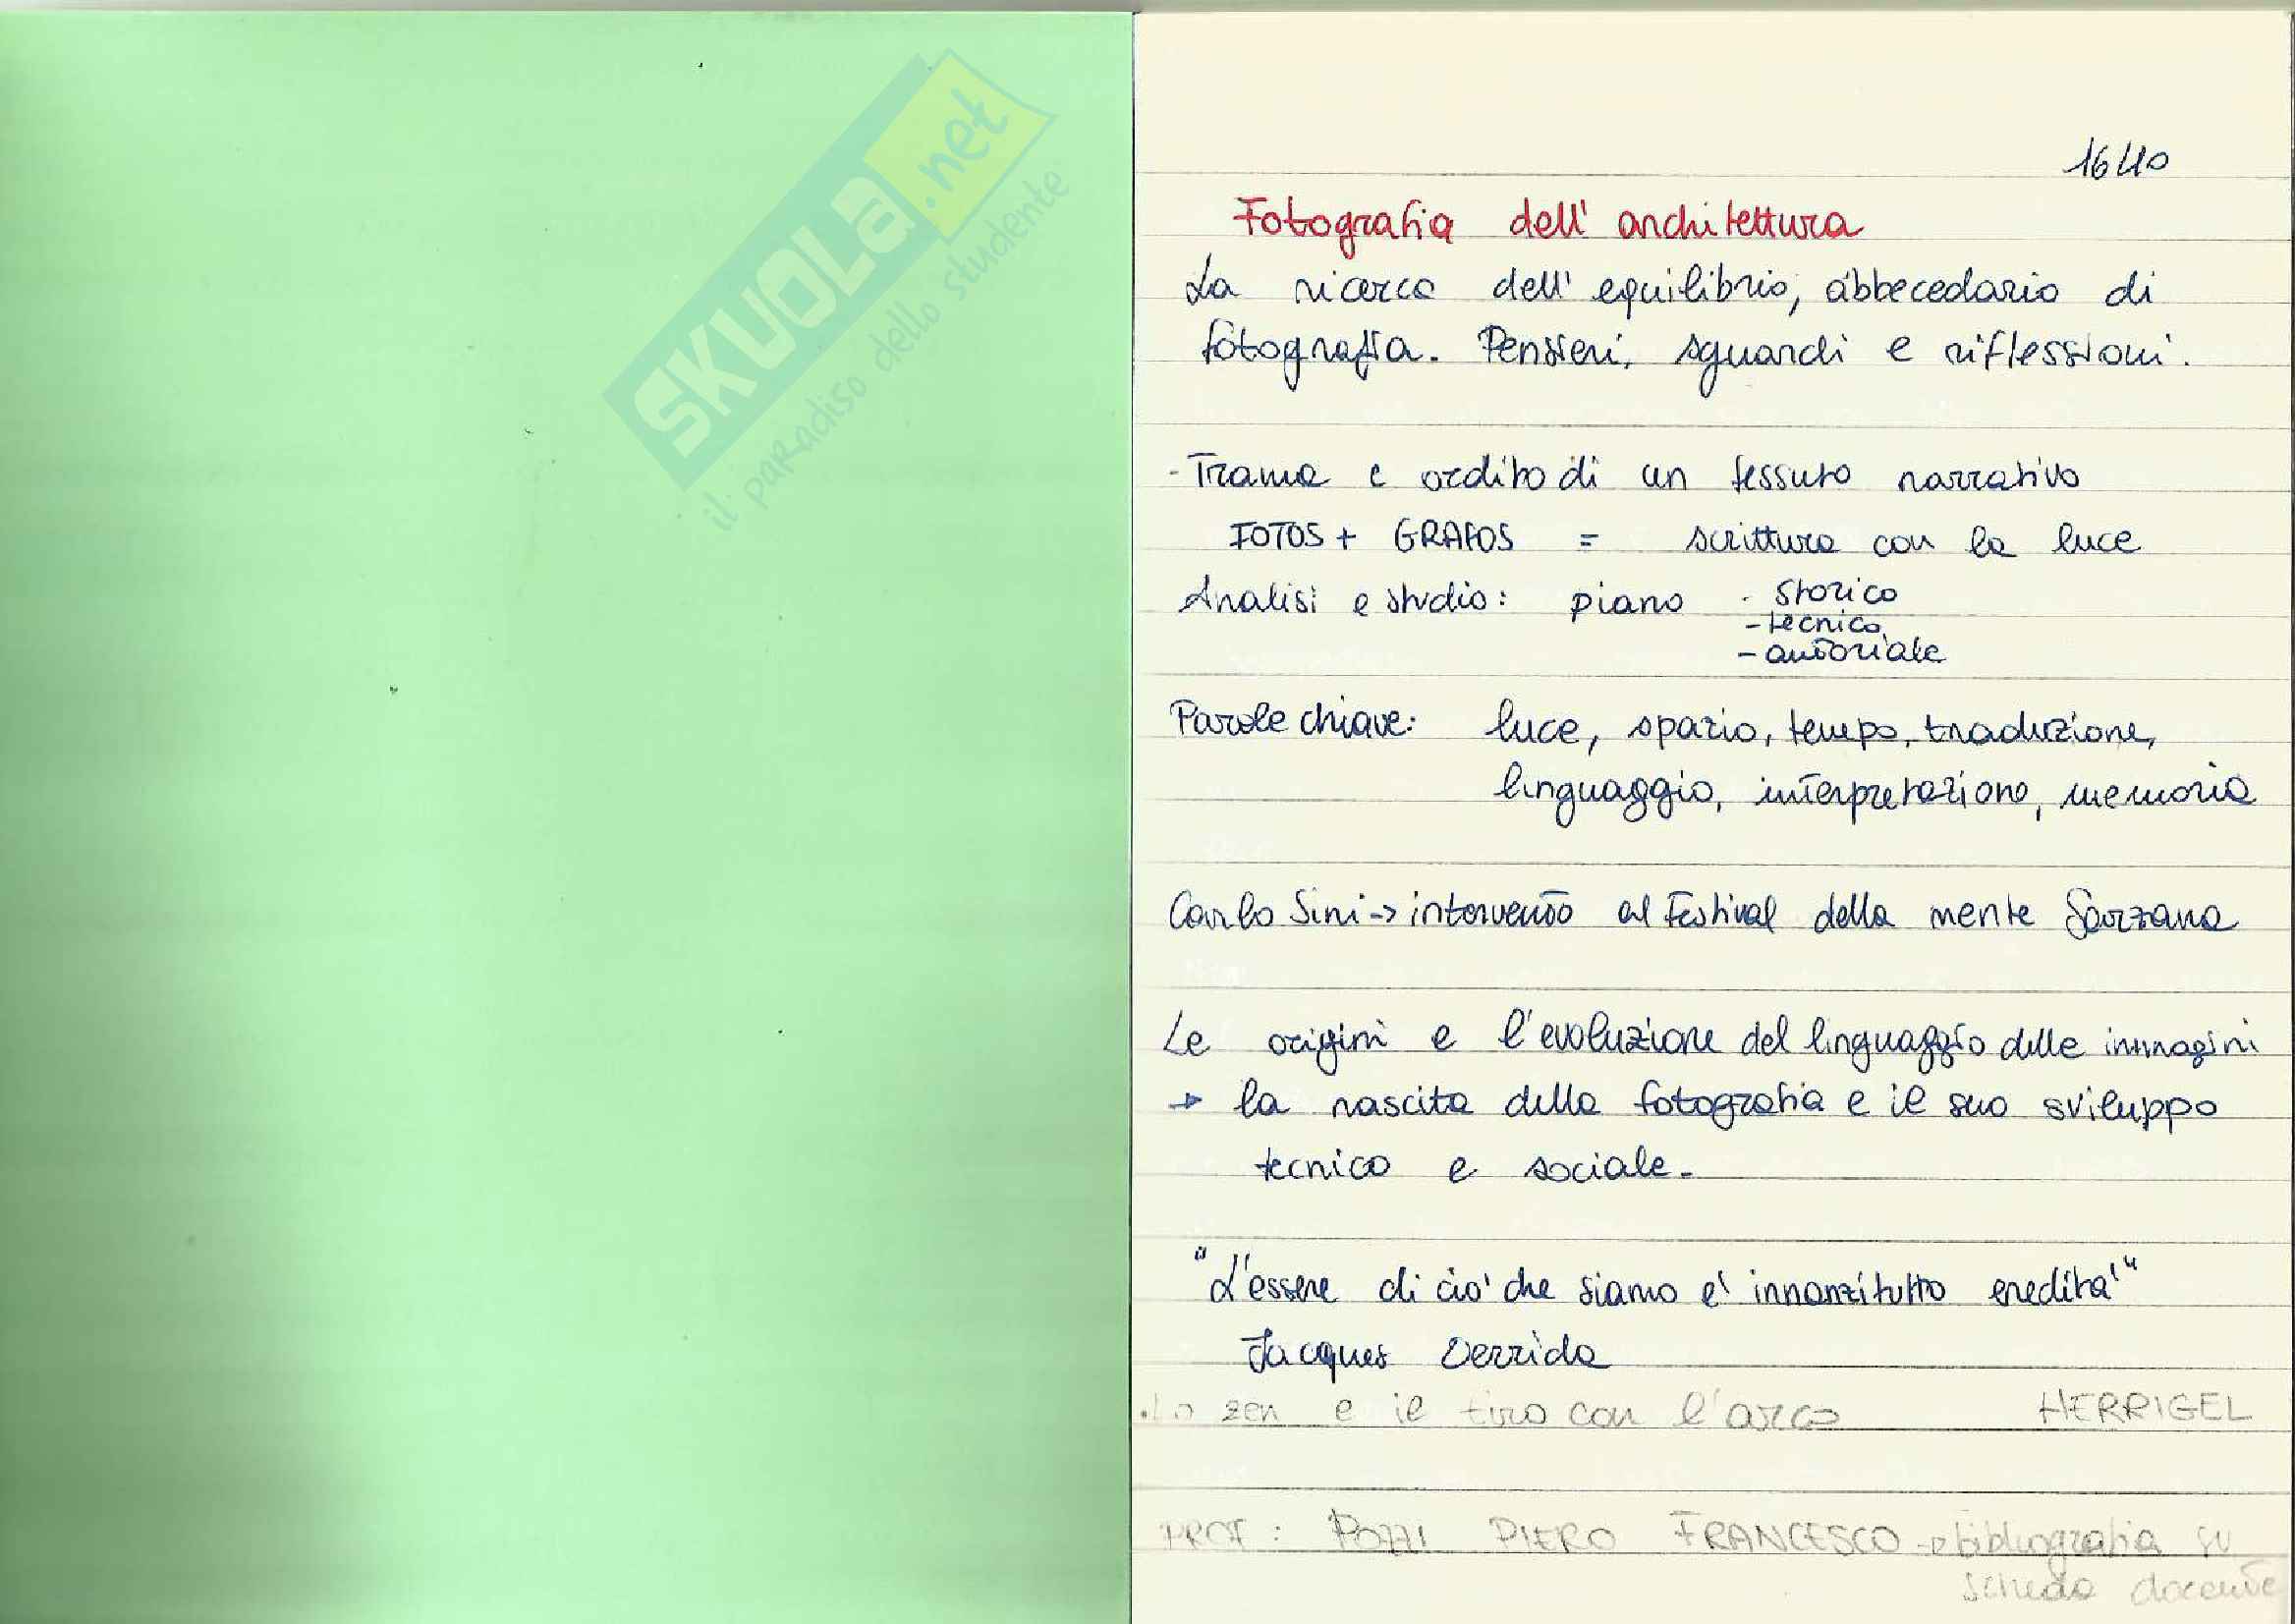 SKUOLA.net
il paradiso dello studente
Fotografia dell' architettura
La ricerca dell' equilibrio, abbecedario di
fotografia. Pensieri, sguardi e riflessioni.
- Trama e ordito di un tessuto narrativo
FOTOS + GRAFOS = scrittura con la luce
Analisi e studio: piano - storico
- tecnico
- autoriale
Parole chiave: luce, spazio, tempo, traduzione,
linguaggio, interpretazione, memoria
Carlo Sini -> intervento al Festival della mente Sarzana
Le origini e l'evoluzione del linguaggio delle immagini
→ la nascita della fotografia e il suo sviluppo
tecnico e sociale.
"L'essere di ciò che siamo e' innanzitutto eredita'"
Jacques Derrida
. Lo zen e il tiro con l'arco HERRIGEL
PROF: POZZI PIERO FRANCESCO → bibliografia su
scheda docente